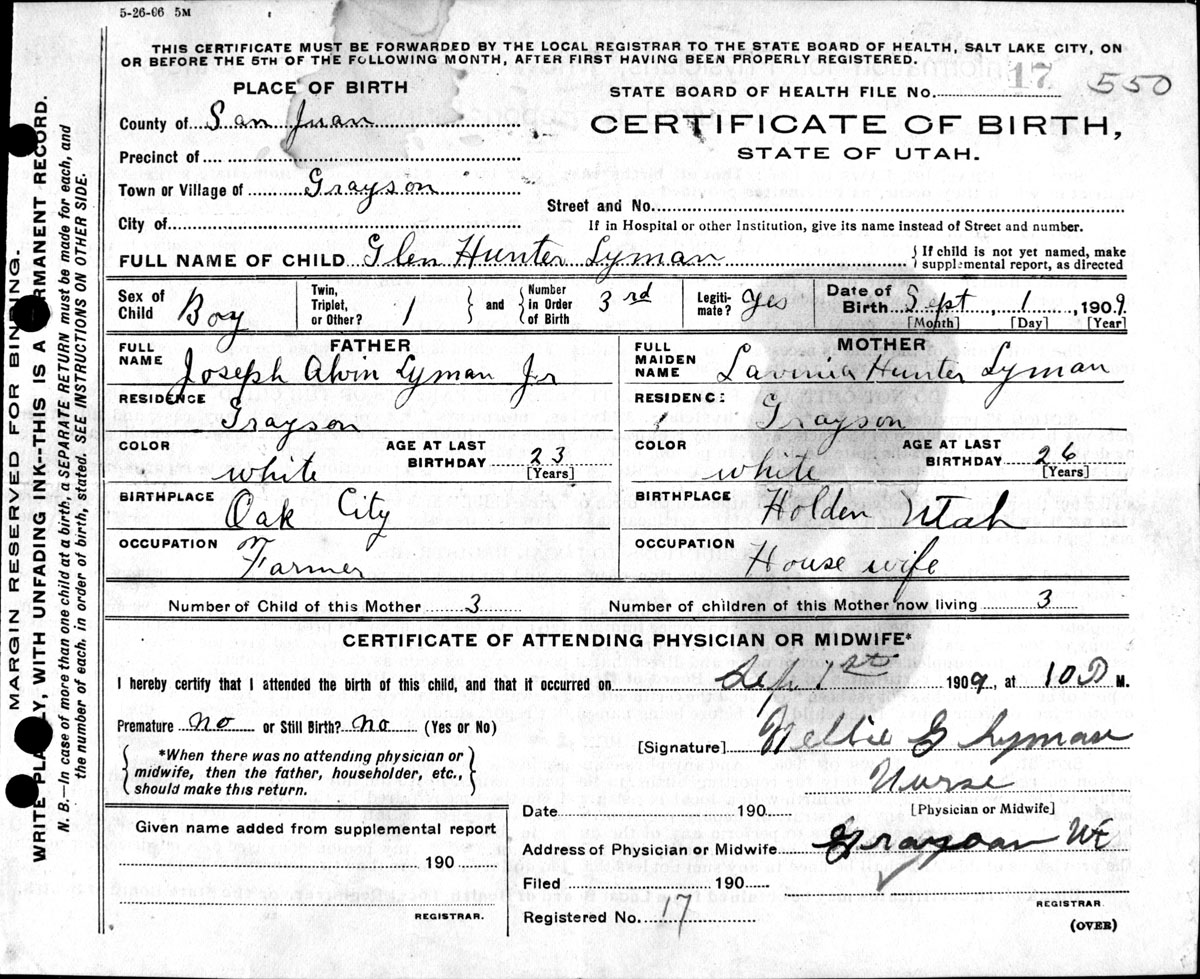 5-26-06 5M
THIS CERTIFICATE MUST BE FORWARDED BY THE LOCAL REGISTRAR TO THE STATE BOARD OF HEALTH, SALT LAKE CITY, ON
OR BEFORE THE 5TH OF THE FOLLOWING MONTH, AFTER FIRST HAVING BEEN PROPERLY REGISTERED.
PLACE OF BIRTH
STATE BOARD OF HEALTH FILE No. 17 550
County of San Juan
CERTIFICATE OF BIRTH,
STATE OF UTAH.
Precinct of
Town or Village of Grayson
Street and No.
City of
If in Hospital or other Institution, give its name instead of Street and number.
FULL NAME OF CHILD Glen Hunter Lyman { If child is not yet named, make
supplemental report, as directed
Sex of Child Boy Twin, Triplet, or Other? 1 } and { Number in Order of Birth 3rd Legiti-mate? Yes Date of Birth Sept 1, 1909
[Month] [Day] [Year]
FATHER
FULL NAME Joseph Alvin Lyman Jr
RESIDENCE
Grayson
COLOR white AGE AT LAST BIRTHDAY 23
[Years]
BIRTHPLACE
Oak City
OCCUPATION
Farmer
MOTHER
FULL MAIDEN NAME Lavinia Hunter Lyman
RESIDENCE
Grayson
COLOR white AGE AT LAST BIRTHDAY 26
[Years]
BIRTHPLACE
Holden Utah
OCCUPATION
House wife
Number of Child of this Mother 3 Number of children of this Mother now living 3
CERTIFICATE OF ATTENDING PHYSICIAN OR MIDWIFE*
I hereby certify that I attended the birth of this child, and that it occurred on Sep. 1st 1909, at 10 P M.
Premature no or Still Birth? no (Yes or No)
*When there was no attending physician or
midwife, then the father, householder, etc.,
should make this return.
[Signature] Nellie G Lyman
Nurse
[Physician or Midwife]
Given name added from supplemental report
190
REGISTRAR.
Date 190
Address of Physician or Midwife Grayson Ut
Filed 190
Registered No. 17
REGISTRAR.
(OVER)
MARGIN RESERVED FOR BINDING.
WRITE PLAINLY, WITH UNFADING INK--THIS IS A PERMANENT RECORD.
N. B.—In case of more than one child at a birth, a SEPARATE RETURN must be made for each, and
the number of each, in order of birth, stated. SEE INSTRUCTIONS ON OTHER SIDE.